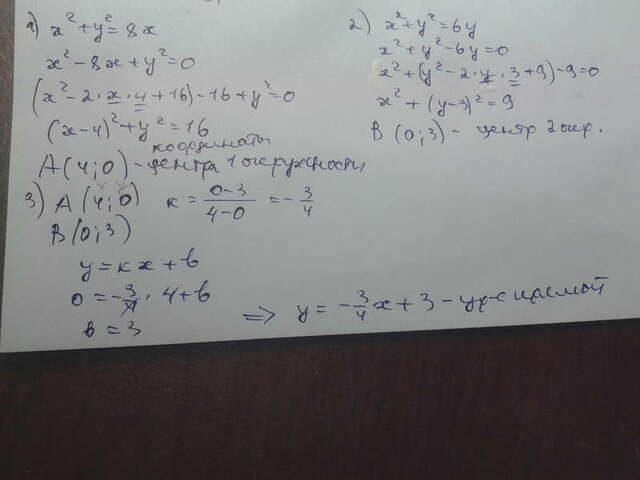 1) x² + y² = 8x
x² - 8x + y² = 0
(x² - 2·x·4 + 16) - 16 + y² = 0
(x-4)² + y² = 16
координаты
A(4;0) - центра 1 окружности
2) x² + y² = 6y
x² + y² - 6y = 0
x² + (y² - 2·y·3 + 9) - 9 = 0
x² + (y-3)² = 9
B(0;3) - центр 2 окр.
3) A(4;0) к = (0-3)/(4-0) = -3/4
B(0;3)
y = кx + b
0 = -3/4 · 4 + b
b = 3
=> y = -3/4x + 3 - ур-е прямой